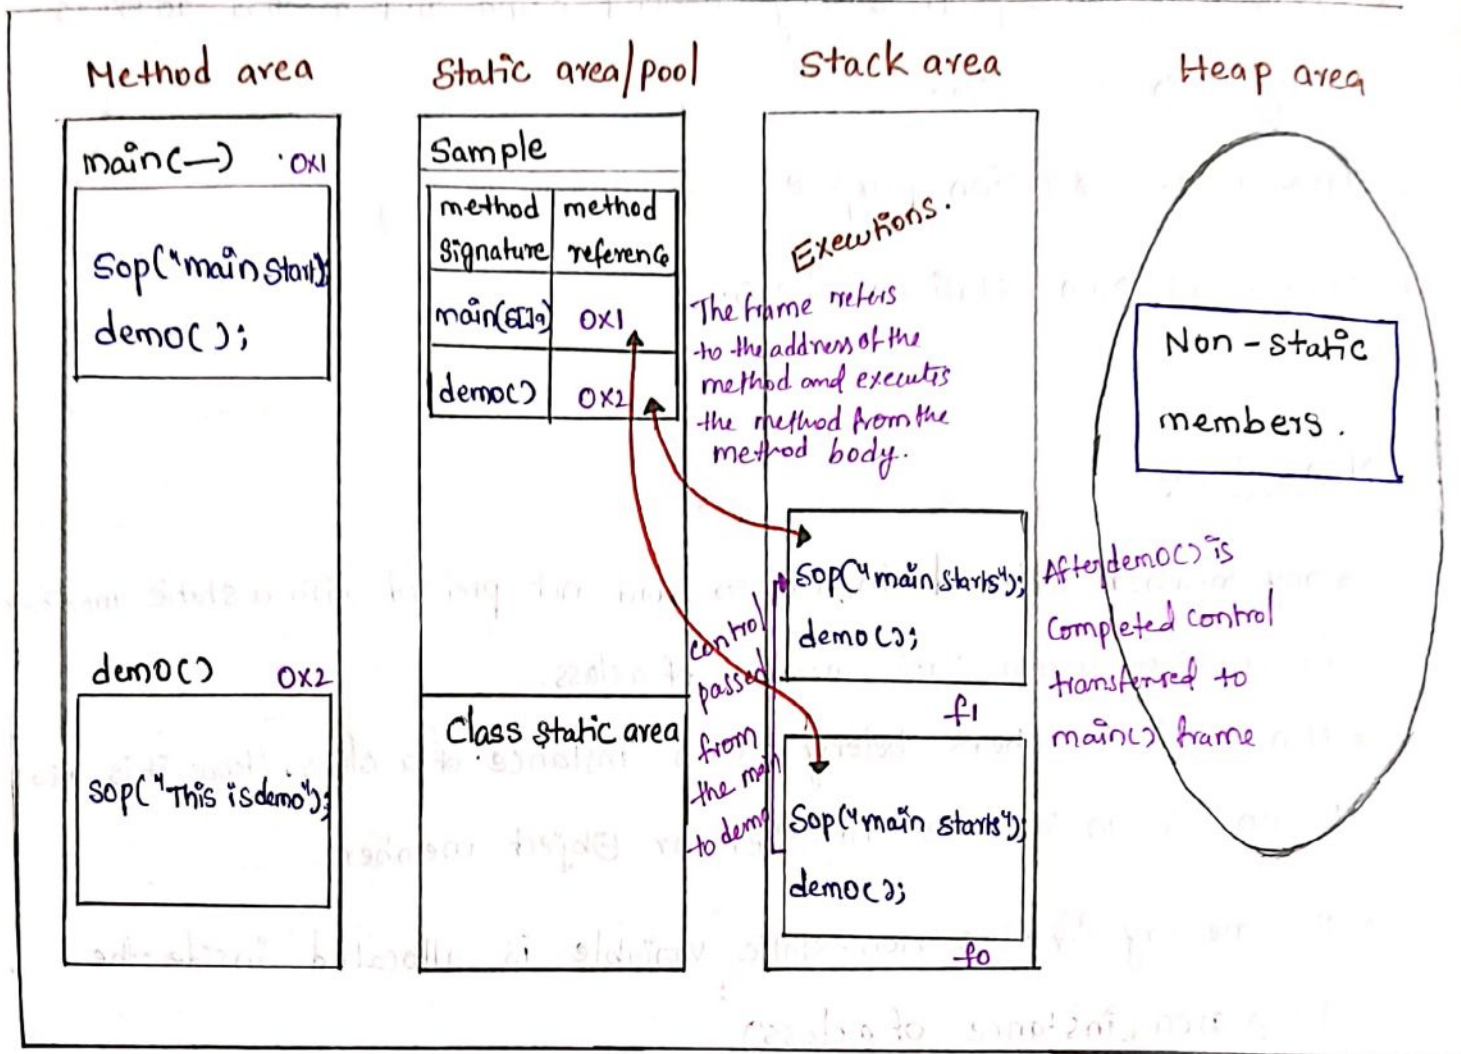 Method area
main(—) 0x1
Sop("main start);
demo();
demo() 0x2
sop("This is demo");
Static area/pool
Sample
method signature
method reference
main(S[]a) 0x1
demo() 0x2
Class static area
Stack area
Executions.
The frame refers
to the address of the
method and executes
the method from the
method body.
sop("main starts");
demo();
f1
control
passed
from
the main
to demo
Sop("main starts");
demo();
f0
After demo() is
Completed control
transferred to
main() frame
Heap area
Non-static
members.